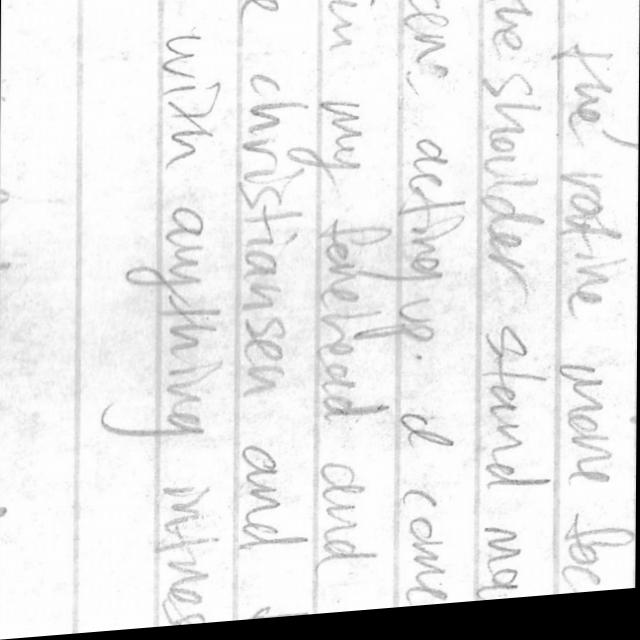 the rotihe more
he shoulder stand
acting up. I come
in my forehead and
christiansen and
with anything